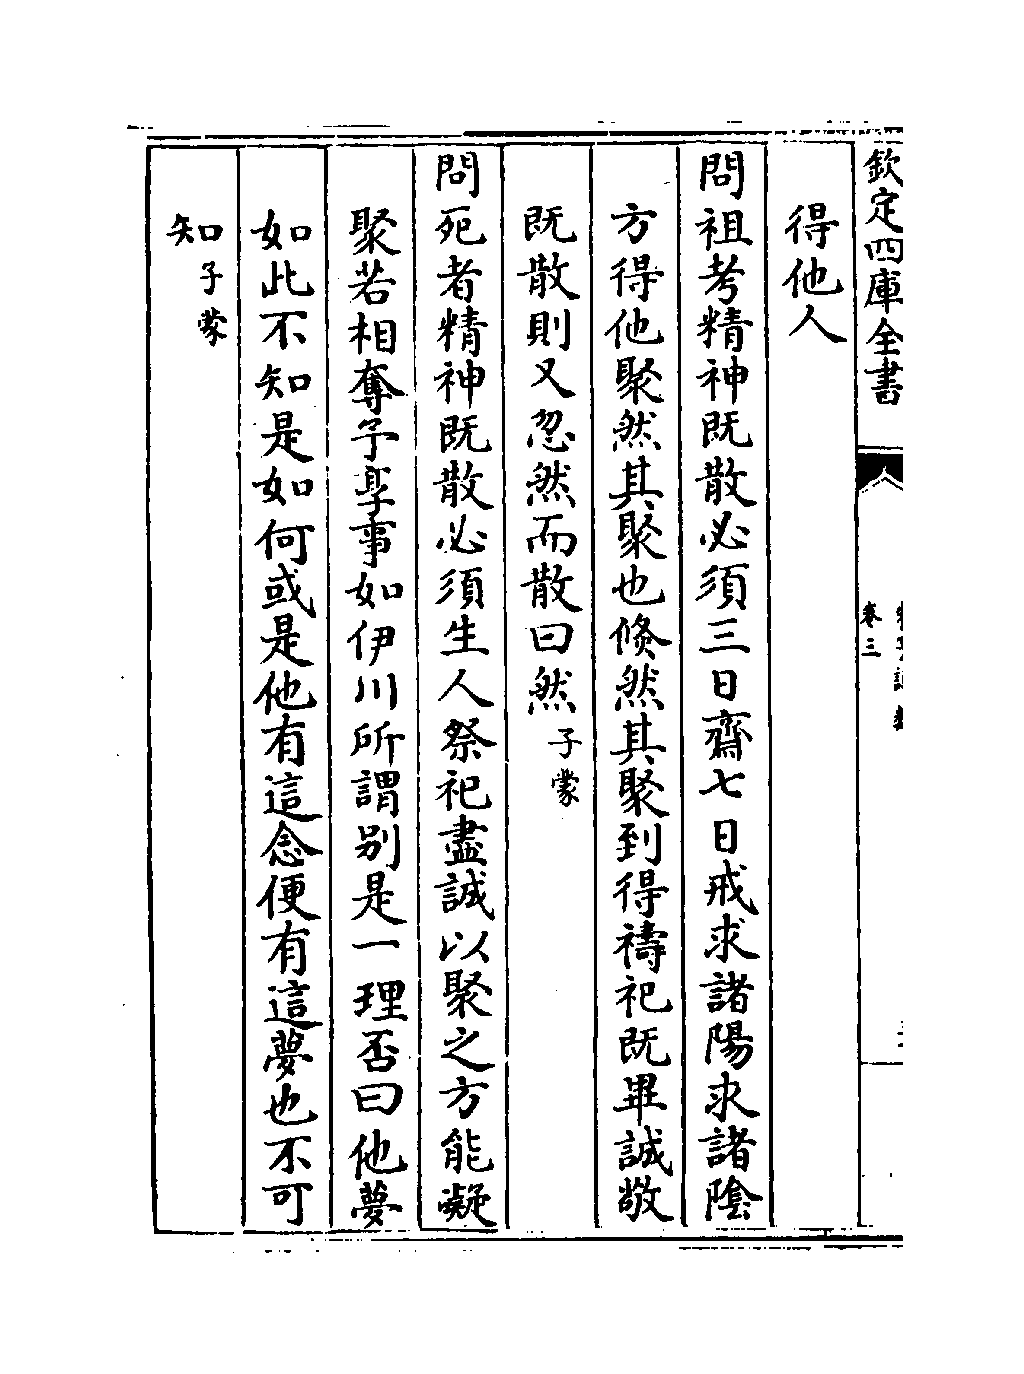 欽定四庫全書
卷三
得他人
問祖考精神既散必須三日齋七日戒求諸陽求諸陰
方得他聚然其聚也倏然其聚到得禱祀既畢誠敬
既散則又忽然而散曰然子蒙
問死者精神既散必須生人祭祀盡誠以聚之方能凝
聚若相奪予享事如伊川所謂别是一理否曰他夢
如此不知是如何或是他有這念便有這夢也不可
知子蒙